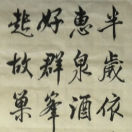 半歲依
惠泉酒
好群峯
起故巢